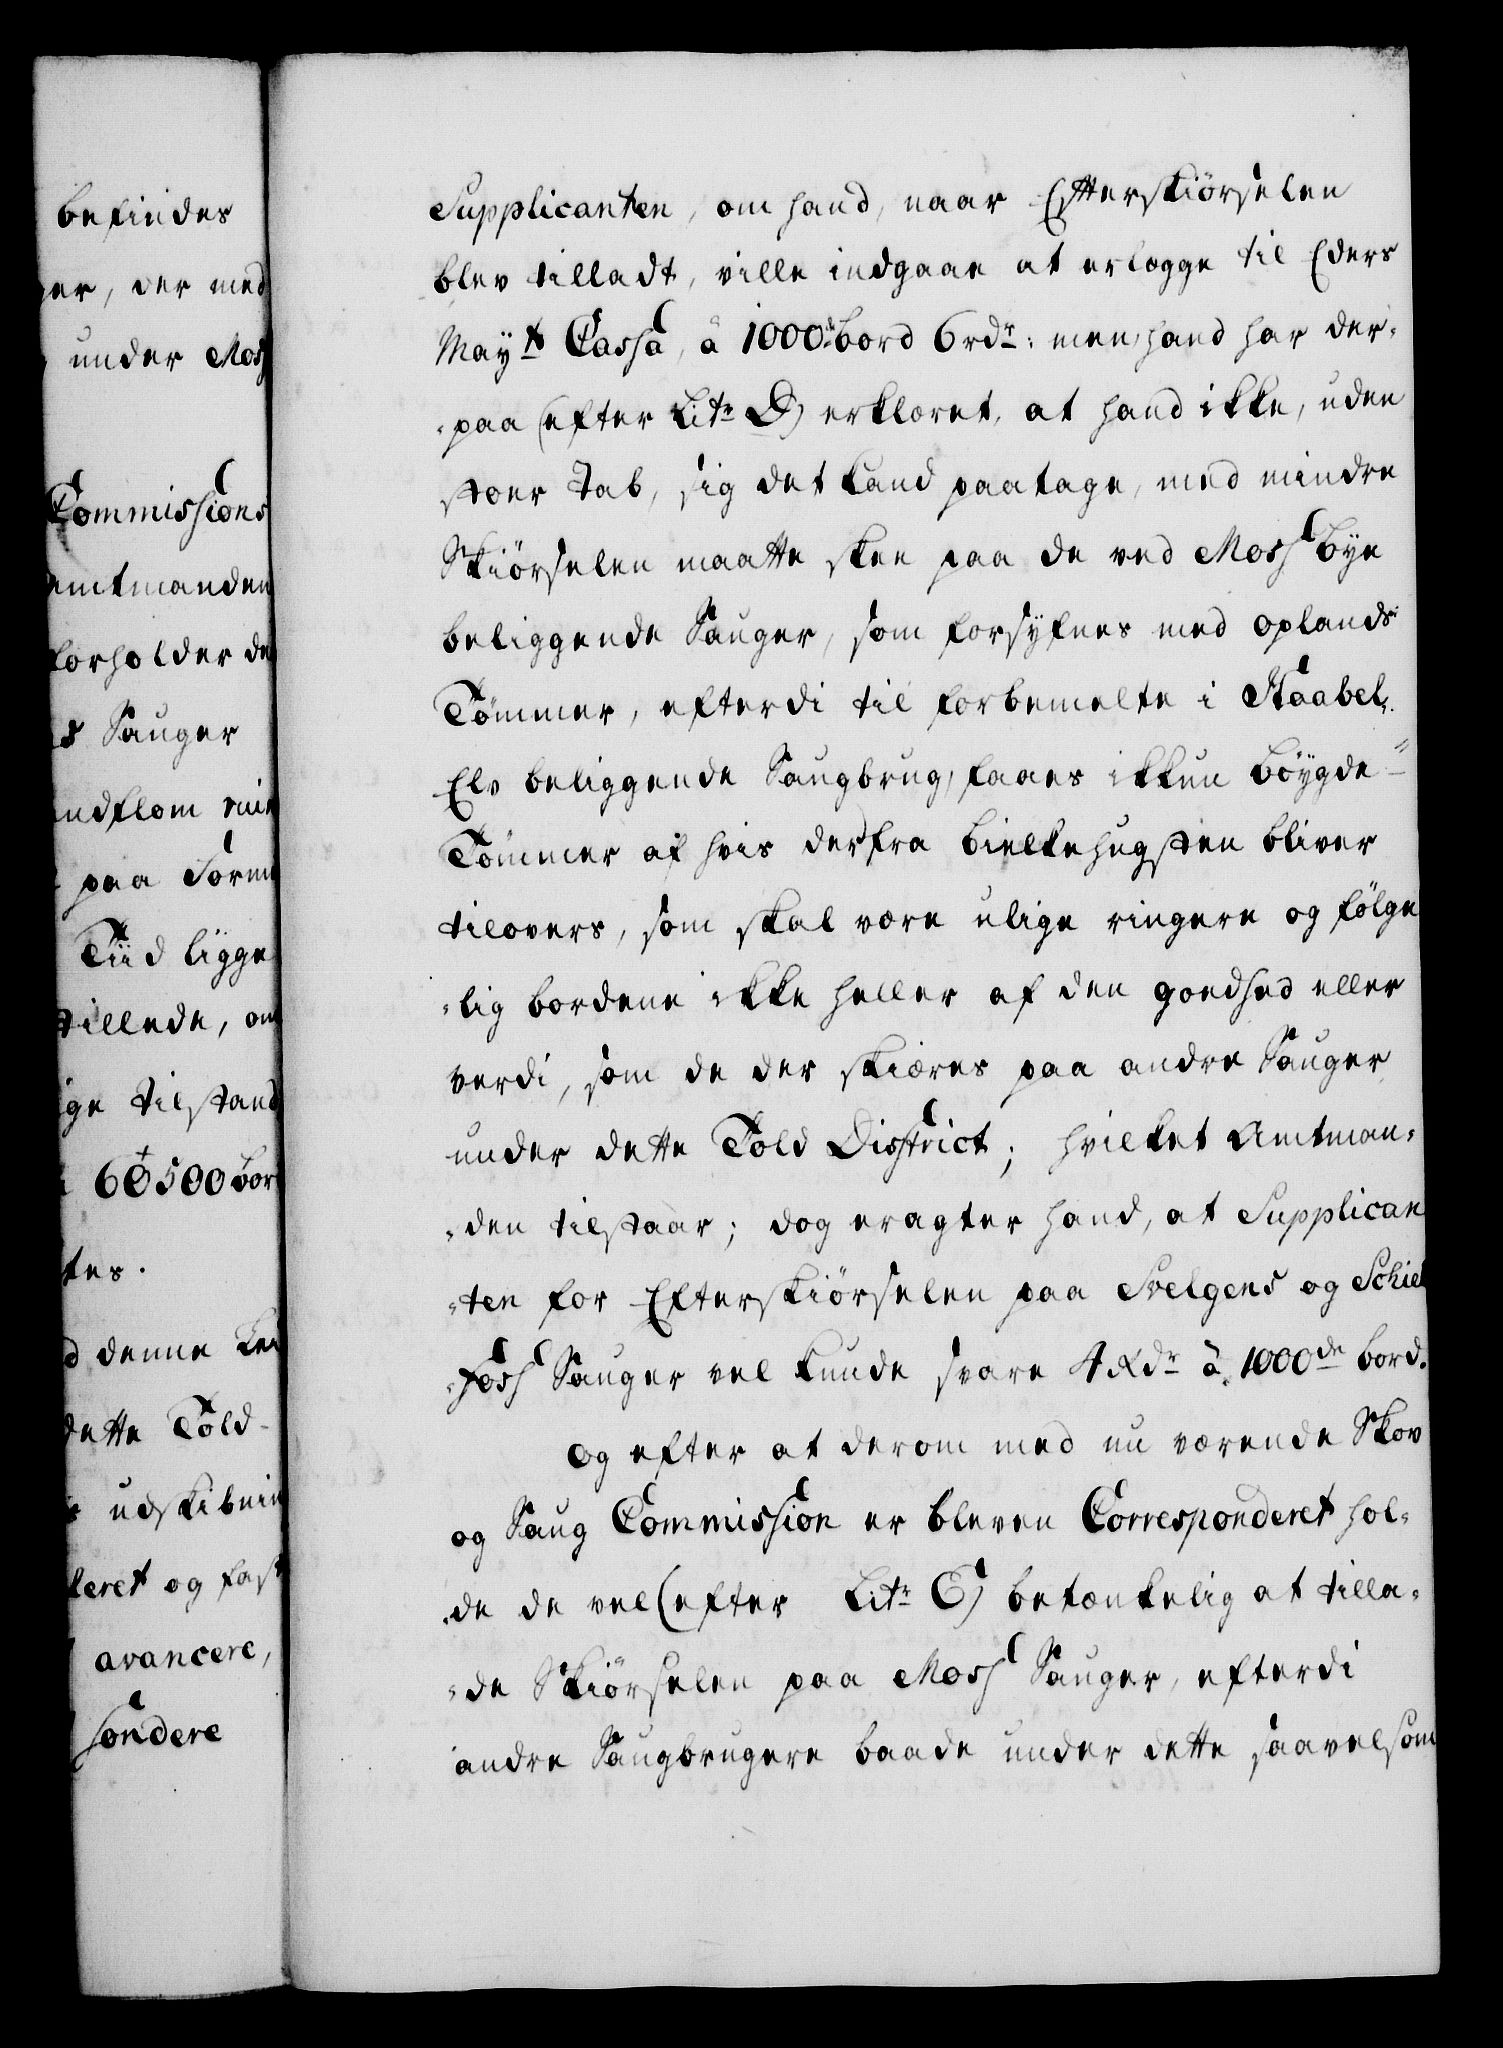 befindes
er, der med
under Moss
Commissions
Amtmanden
forholder de
s Sauger
ndflom
paa
Tiid ligge
stillede, om
ige tilstand
60500 bor
tes.
d denne
dette Told-
udskibnin
leret og fast
avancere,
sondere
Supplicanten, om hand, naar Efterskiörselen
blev tilladt, ville indgaae at erlægge til Eders
Mayts Cassa, à 1000de bord 6 rdr: men hand har der-
-paa (efter Litr D) erklæret, at hand ikke, uden
stoer Tab, sig det kand paatage, med mindre
Skiörselen maatte skee paa de ved Moss bye
beliggende Sauger, som forsÿnes med oplands
Tömmer, efterdi til forbemelte i Staabel-
Elv beliggende Saugbrug, faaes ikkun böÿgde-
Tömmer af hvis derfra bielkehugsten bliver
tilovers, som skal være ulige ringere og fölge
-lig bordene ikke heller af den goedhed eller
verdi, som de der skiæres paa andre Sauger
under dette Told District; hvilket Amtman-
-den tilstaar; dog eragter hand, at Supplican
-ten for Efterskiörselen paa Svelgens og Schiel
-foss Sauger vel kunde svare 4 Rdr à 1000de bord.
Og efter at derom med nu værende Skov
og Saug Commission er bleven Corresponderet hol-
-de de vel (efter Litr E) betænkelig at tilla-
-de Skiörselen paa Moss Sauger, efterdi
andre Saugbrugere baade under dette saavelsom